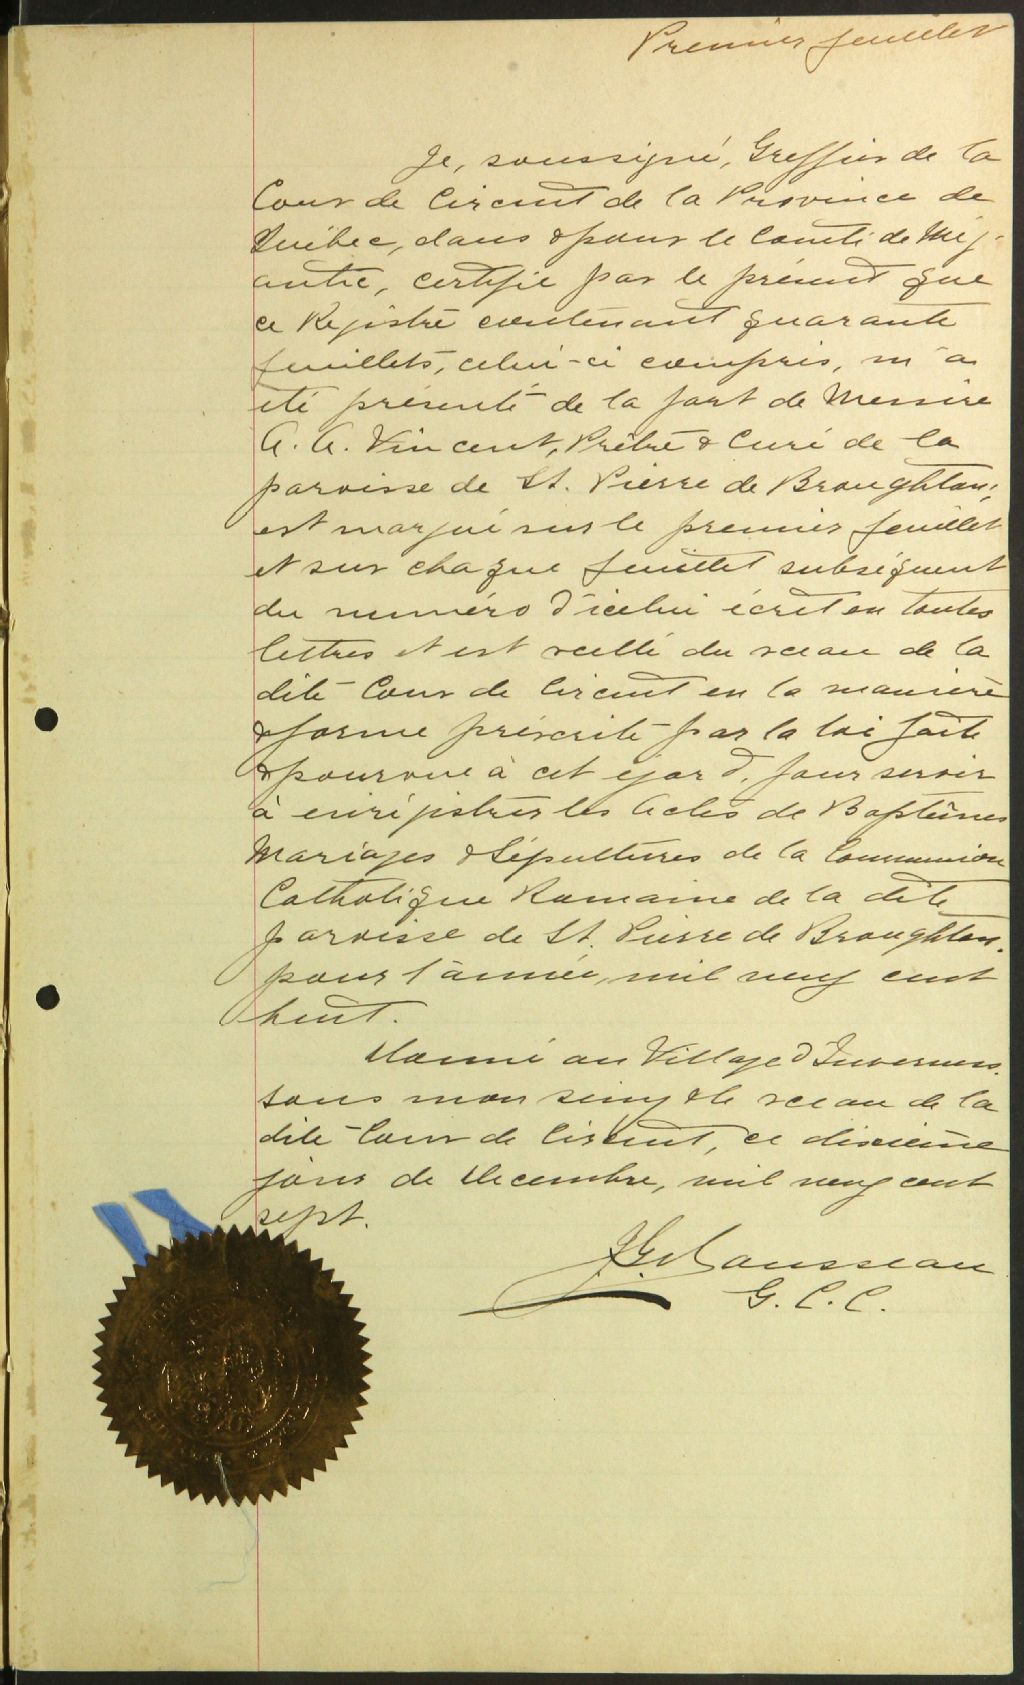 Premier feuillet
Je, soussigné, Greffier de la
Cour de Circuit de la Province de
Québec, dans & pour le Comté de Még-
antic, certifie par le présent que
ce Registre contenant quarante
feuillets, celui-ci compris, m'a
été présenté de la part de Messire
A. A. Vincent, Prêtre & Curé de la
paroisse de St. Pierre de Broughton,
est marqué sur le premier feuillet
et sur chaque feuillet subséquent
du numéro d'icelui écrit en toutes
lettres et est scellé du sceau de la
dite Cour de Circuit en la manière
& forme préscrite par la loi faite
& pourvue à cet égard, pour servir
à enrégistrer les Actes de Baptêmes
Mariages & Sépultures de la Communion
Catholique Romaine de la dite
paroisse de St. Pierre de Broughton.
pour l'année, mil neuf cent
huit.
Donné au Village d'Inverness.
sous mon seing & le sceau de la
dite Cour de Circuit, ce dixième
jour de Decembre, mil neuf cent
sept.
Rousseau
G. C. C.